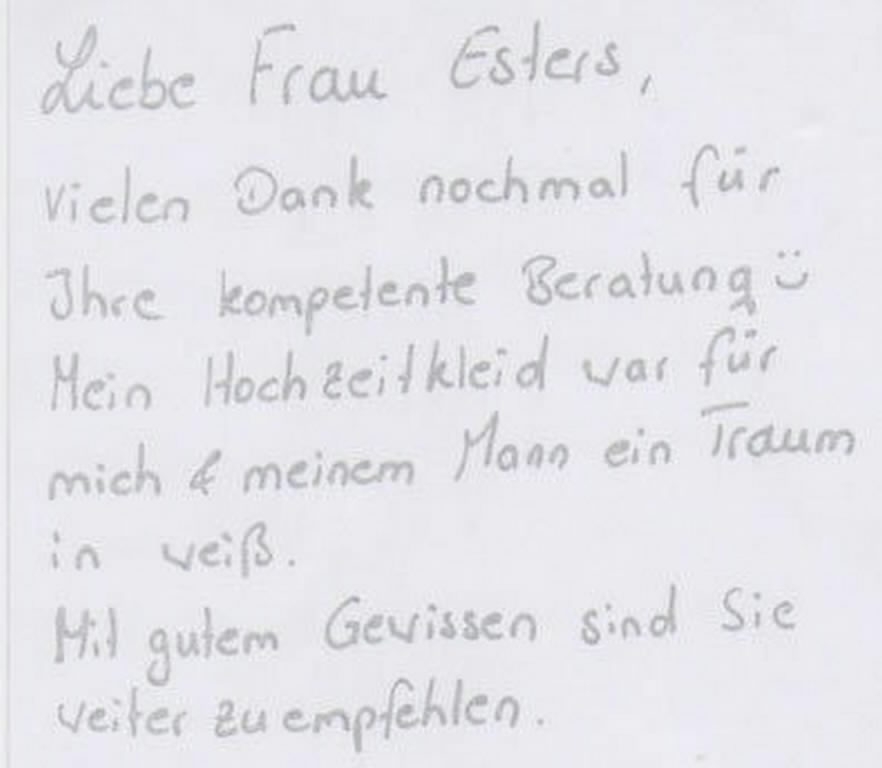 Liebe Frau Esters,
vielen Dank nochmal für
Ihre kompetente Beratung ü
Mein Hochzeitkleid war für
mich & meinem Mann ein Traum
in weiß.
Mit gutem Gewissen sind Sie
weiter zu empfehlen.